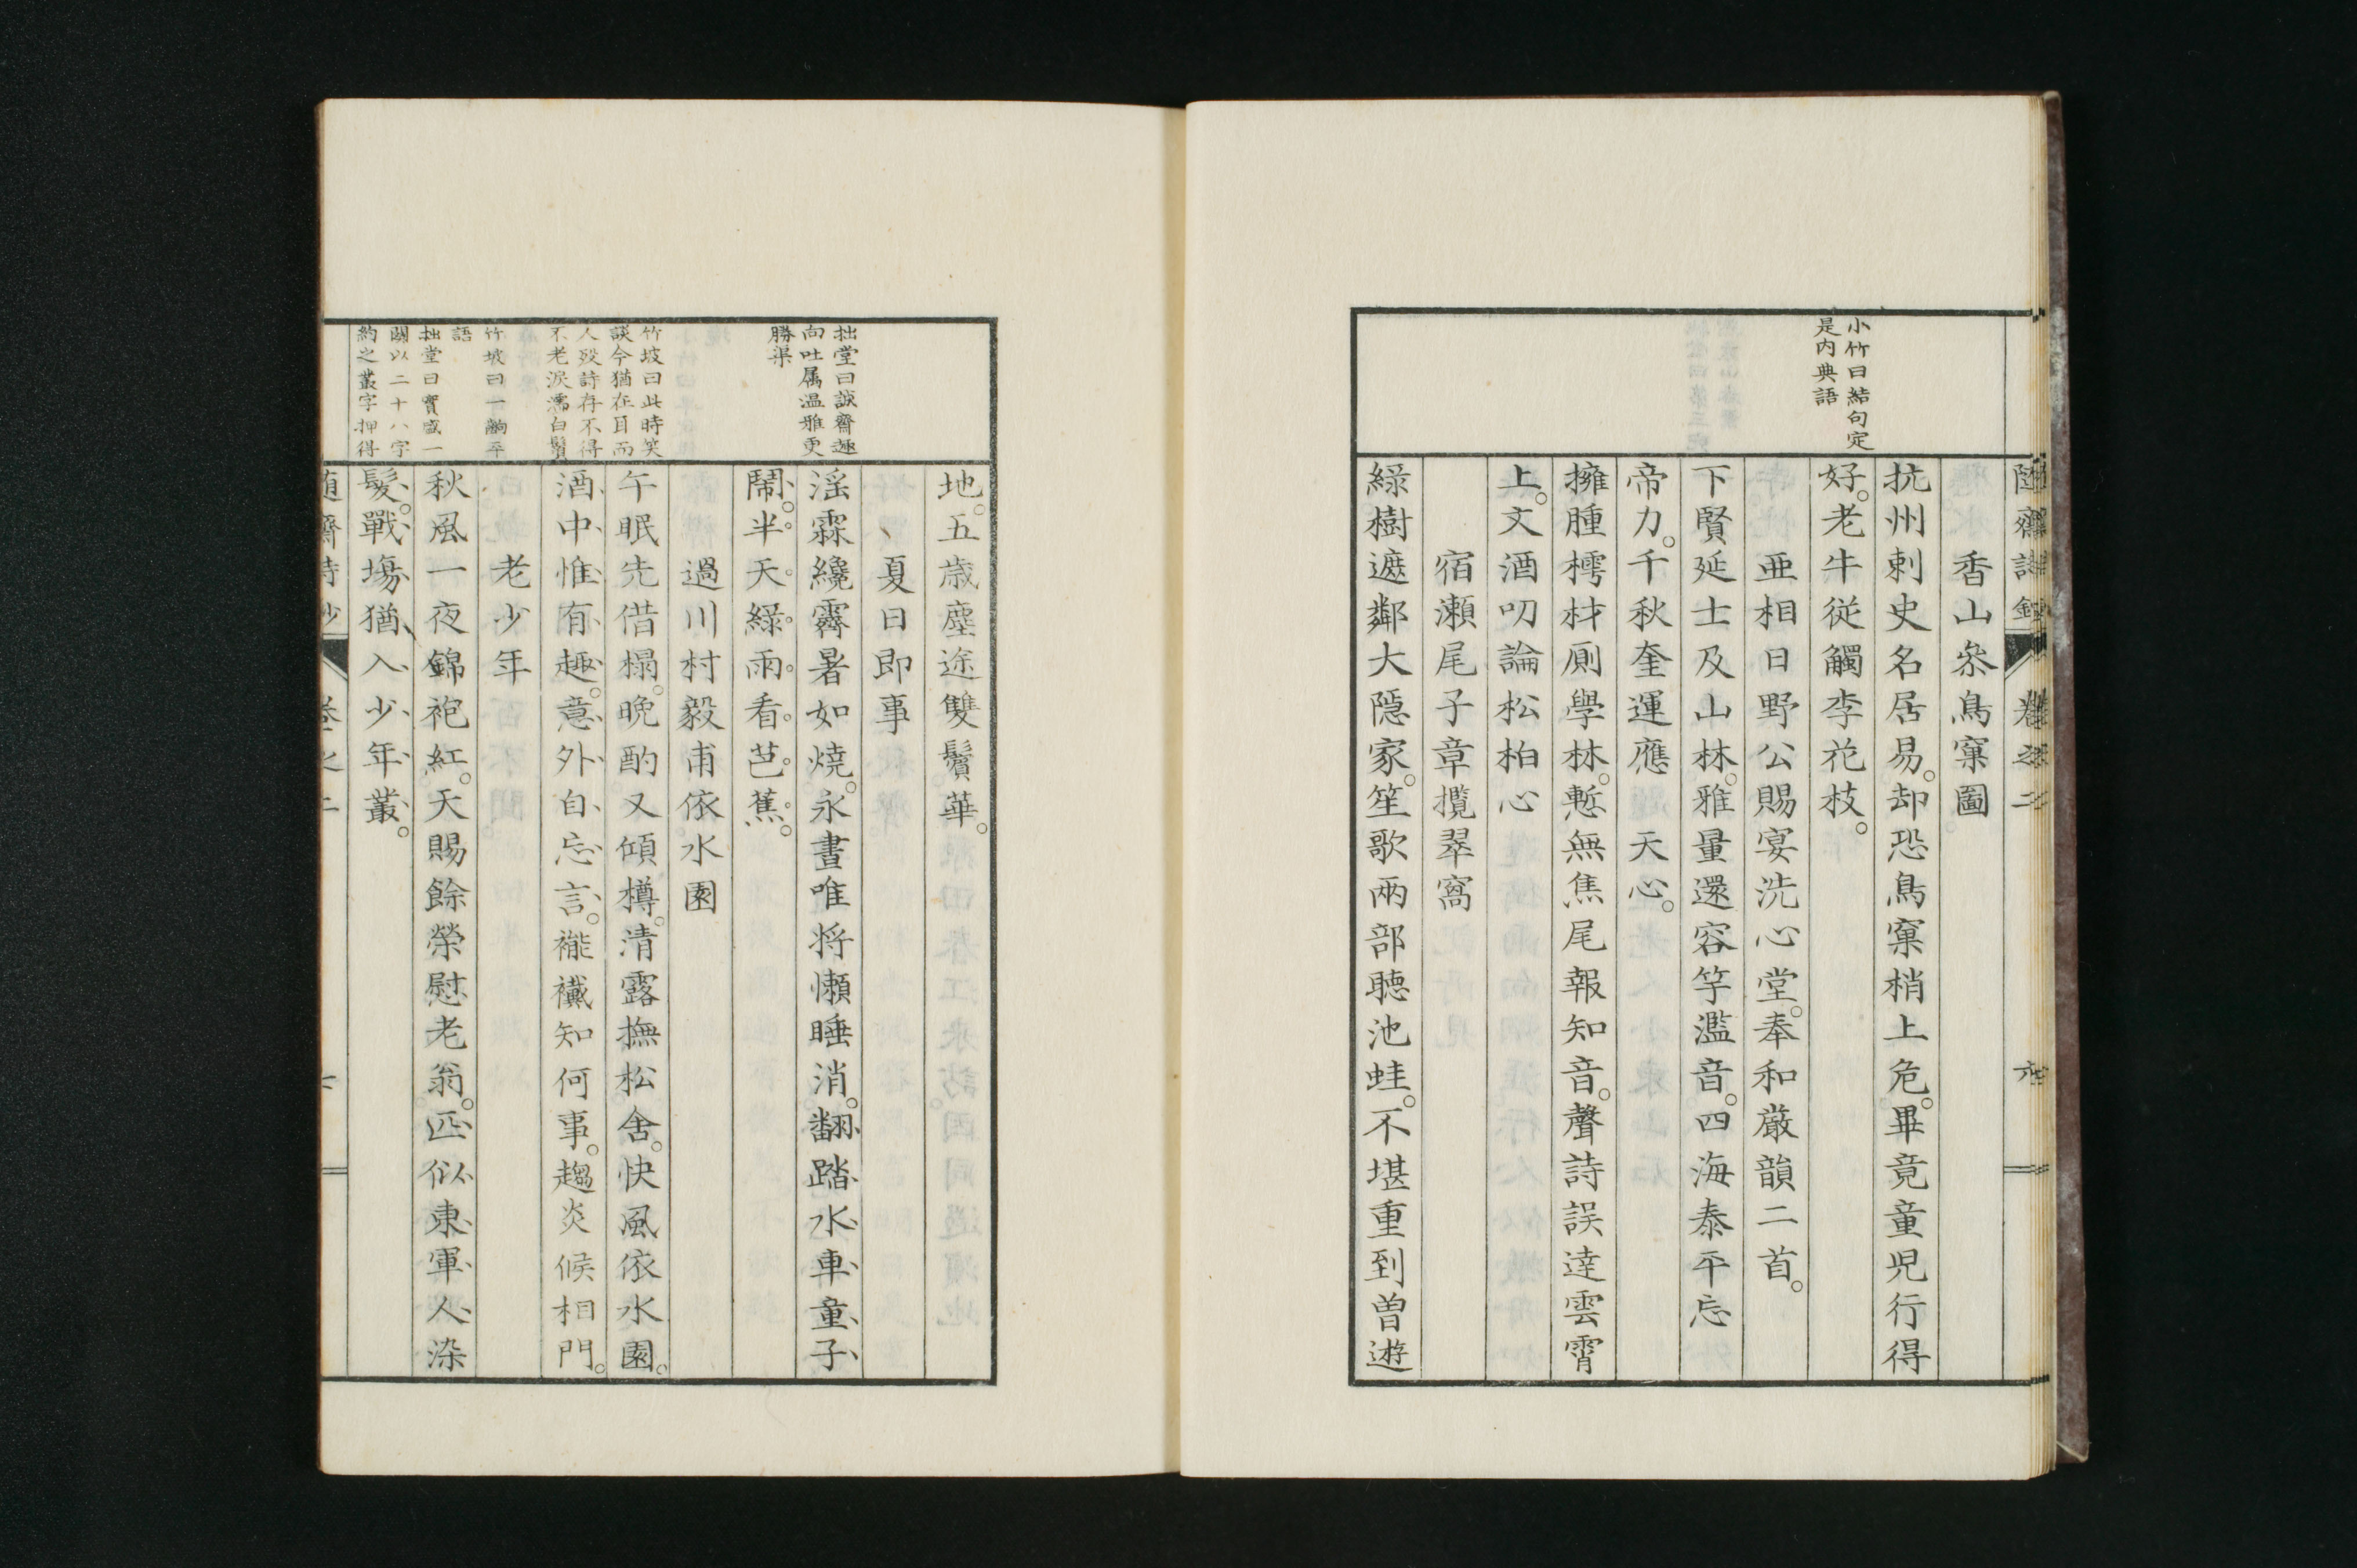 隨齋詩鈔 卷之二 六
小竹曰結句定
是内典語
香山㕘鳥窠圖
抗州刺史名居易。却恐鳥窠梢上危。畢竟童児行得
好。老牛従觸李花枝。
亜相日野公賜宴洗心堂。奉和厳韻二首。
下賢延士及山林。雅量還容竽濫音。四海泰平忘
帝力。千秋奎運應 天心。
擁腫樗材厠學林。慙無焦尾報知音。聲詩誤達雲霄
上。文酒叨論松柏心
宿瀬尾子章攬翠窩
緑樹遮鄰大隠家。笙歌兩部聴池蛙。不堪重到曽遊
拙堂曰誠齋趣
向吐属温雅更
勝渠
竹坡曰此時笑
談今猶在耳而
人殁詩存不得
不老涙濡白鬚
竹坡曰一齣平
語
拙堂曰實感一
闋以二十八字
約之叢字押得
地。五歳塵途雙鬢華。
夏日即事
淫霖纔霽暑如焼。永晝唯将懶睡消。翻踏水車童子
鬧。半天緑雨看芭蕉。
過川村毅甫依水園
午眠先借榻。晩酌又傾樽。清露撫松舎。快風依水園。
酒中惟有趣。意外自忘言。褦襶知何事。趨炎候相門。
老少年
秋風一夜錦袍紅。天賜餘榮慰老翁。匹似東軍人染
髮。戰場猶入少年叢。
随齋詩鈔 卷之二 七